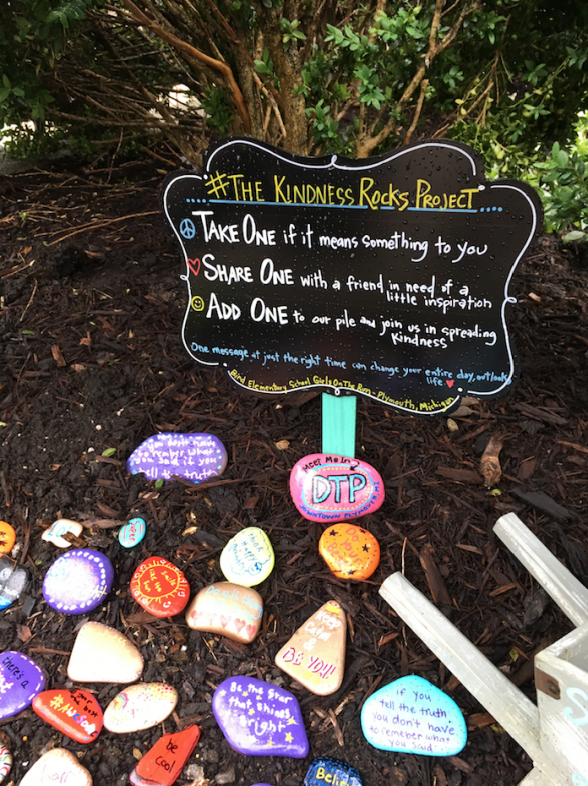 #THE KINDNESS ROCKS PROJECT
TAKE ONE if it means something to you
SHARE ONE with a friend in need of a
little inspiration
ADD ONE to our pile and join us in spreading
Kindness
One message at just the right time can change your entire day, outlook,
life
Bird Elementary School Girls On The Run - Plymouth, Michigan
You don't have
to remember what
you said if you
tell the truth
Meet Me In
DTP
DOWNTOWN PLYMOUTH
Do
Your
Best
BE YOU!
There's a
#AWESOME
be
cool
Be the Star
that shines
Bright
if you
tell the truth
you don't have
to remeber what
you said
Believe